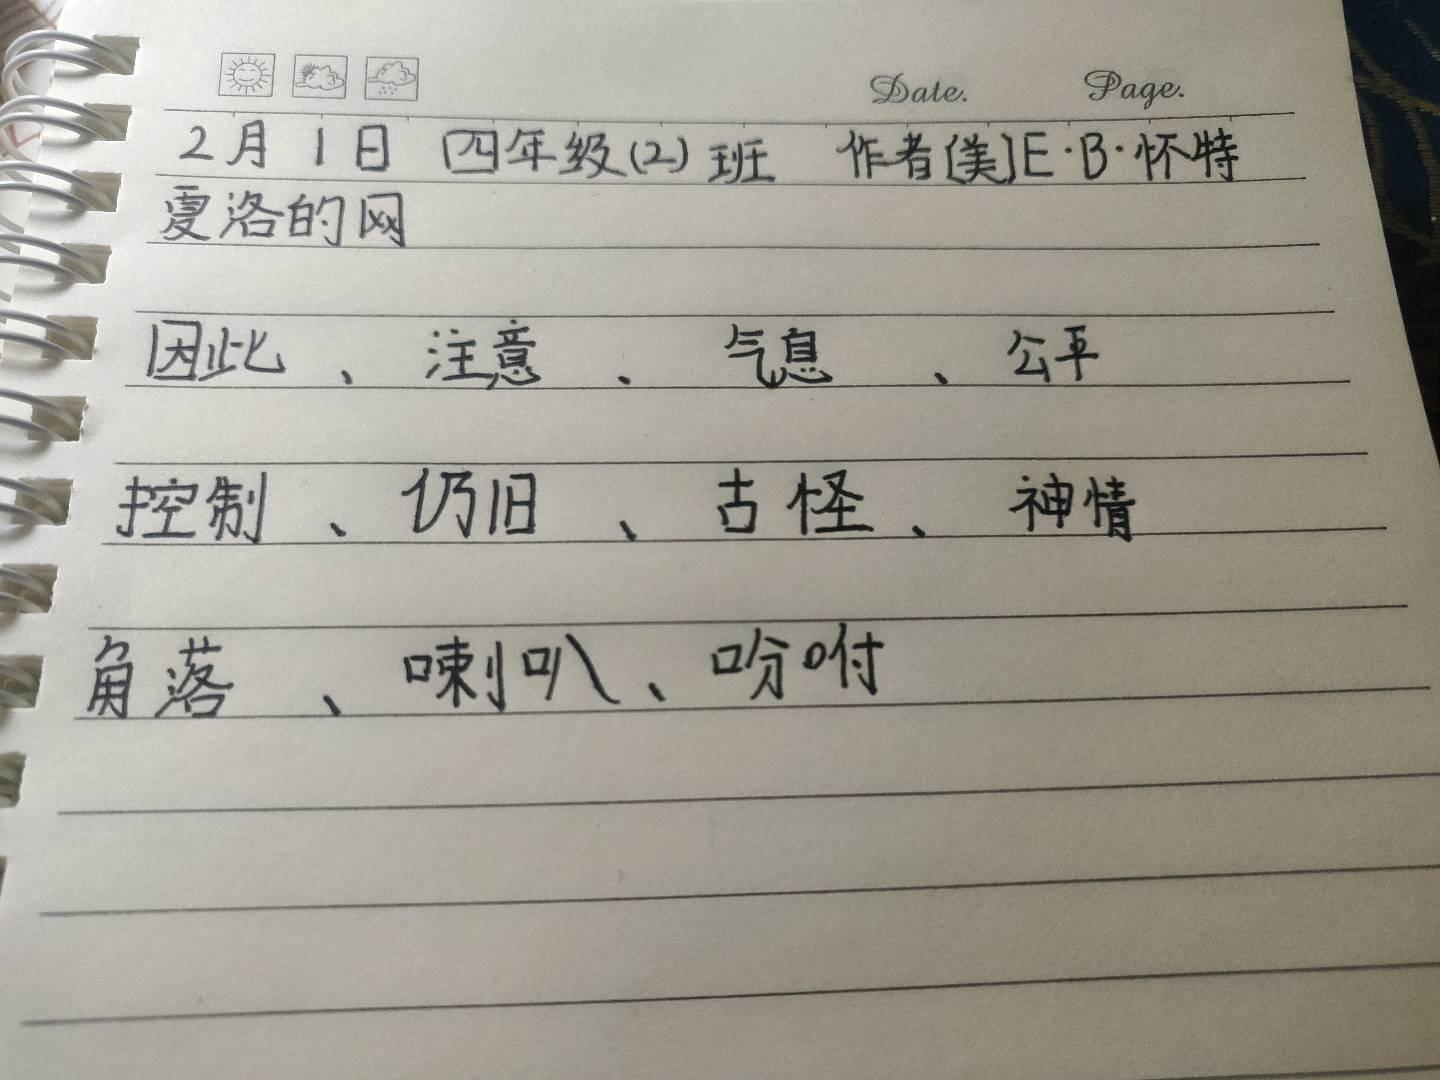 Date. Page.
2月1日 四年级(2)班 作者[美]E·B·怀特
夏洛的网
因此、注意、气息、公平
控制、仍旧、古怪、神情
角落、喇叭、吩咐